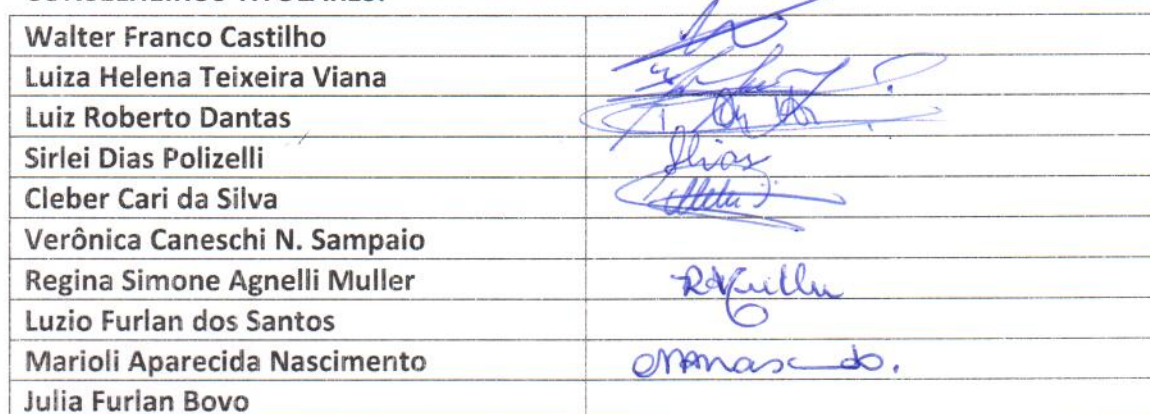 CONSELHEIROS TITULARES:
Walter Franco Castilho
Luiza Helena Teixeira Viana
Luiz Roberto Dantas
Sirlei Dias Polizelli
Cleber Cari da Silva
Verônica Caneschi N. Sampaio
Regina Simone Agnelli Muller
Luzio Furlan dos Santos
Marioli Aparecida Nascimento
Julia Furlan Bovo